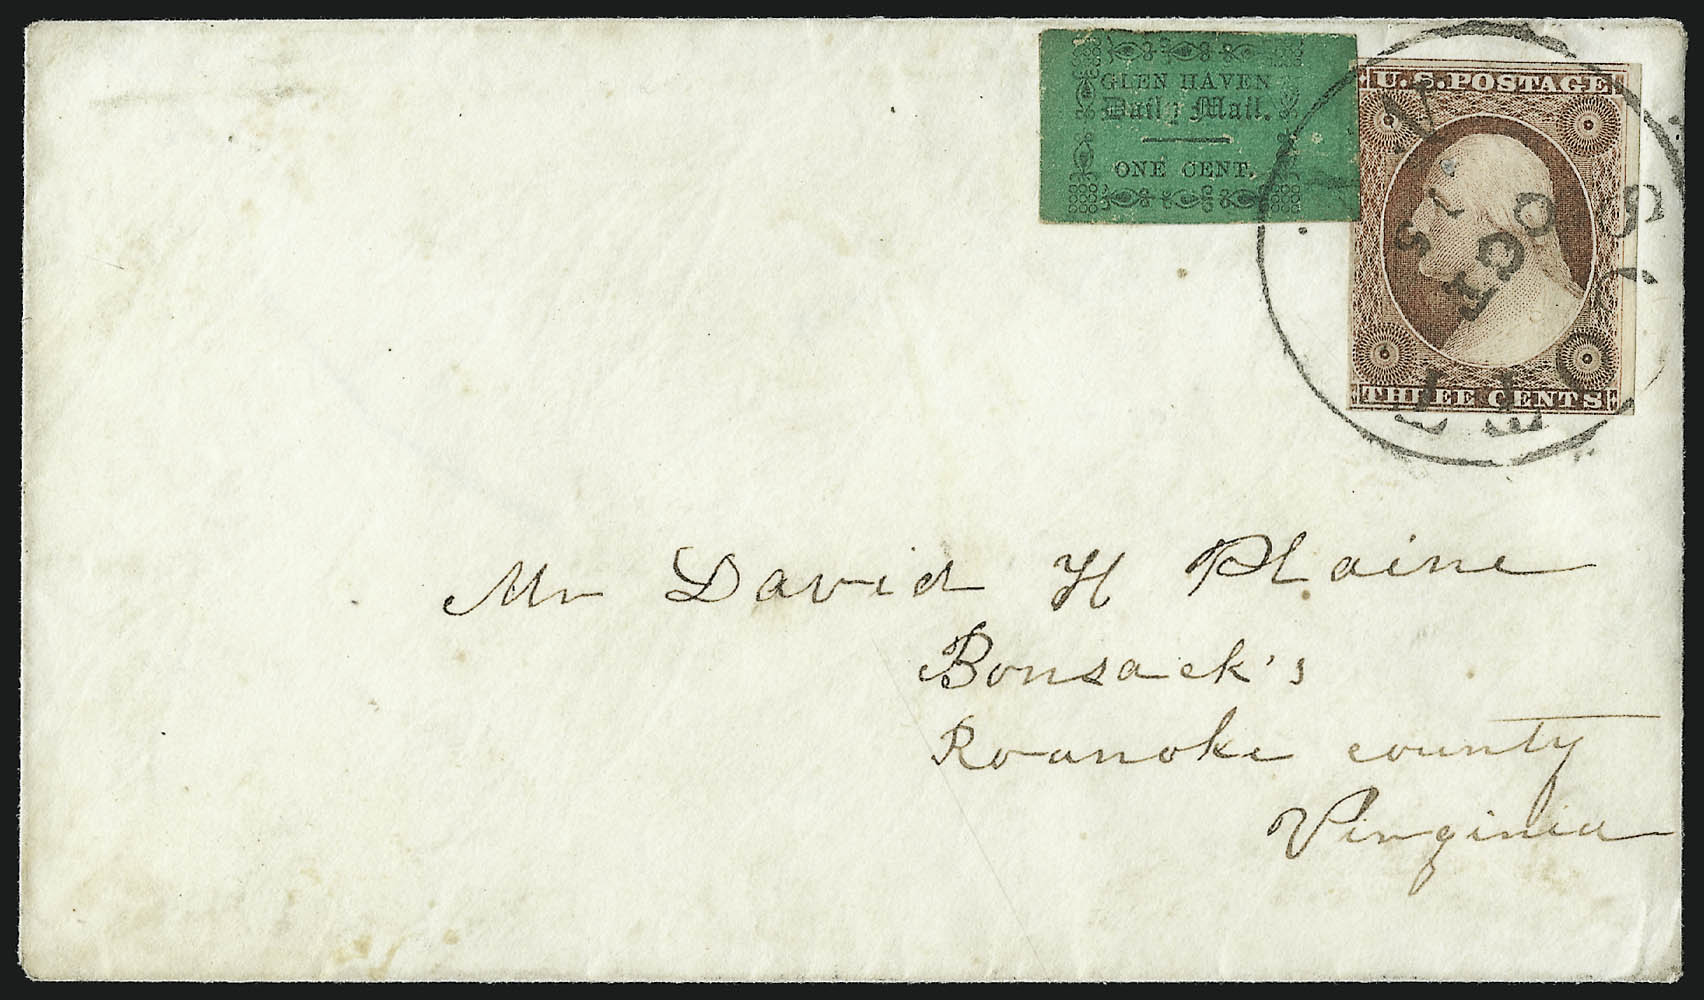 GLEN HAVEN
Daily Mail.
ONE CENT.
U.S. POSTAGE
THREE CENTS
Mr David H Plaine
Bonsack's
Roanoke county
Virginia